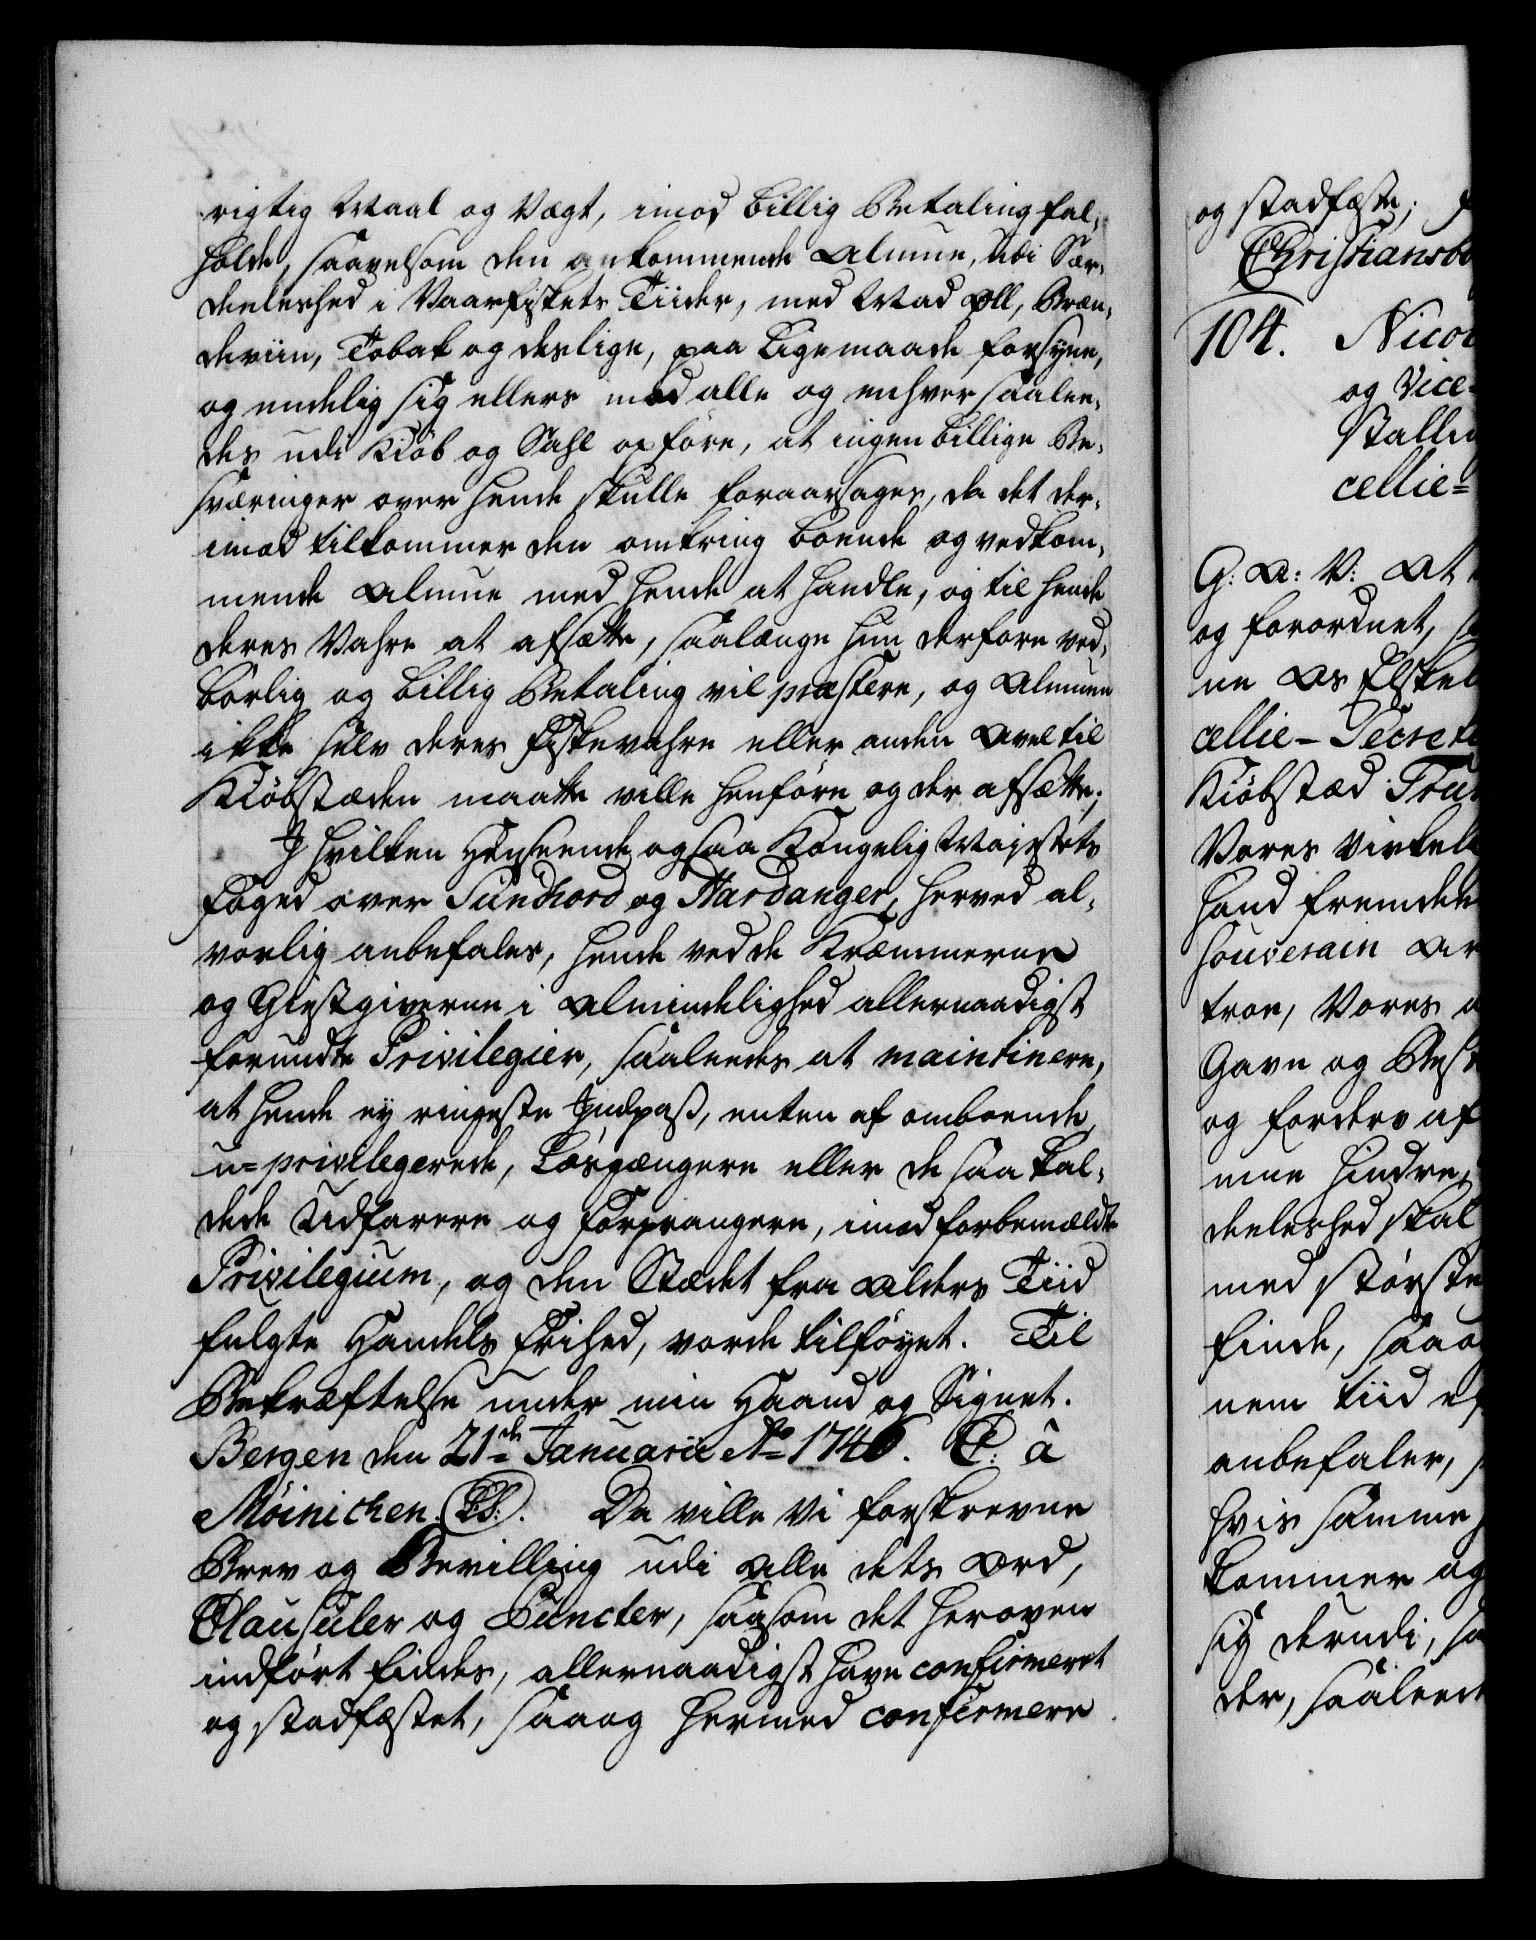 rigtig Maal og Vægt, imod billig Betaling fal-
holde, saavelsom den ankommende Almue, udi Sær-
deeleshed i Vaarfiskets Tiider, med Mad Øll, Bræn-
deviin, Tobak og deslige, paa Ligemaade forsyne,
og endelig sig ellers mod alle og enhver saalee-
des udi Kiøb og Sahl opføre, at ingen billige Be-
sværinger over hende skulle foraarsages, da det der-
imod tilkommer den omkring boende og vedkom-
mende Almue med hende at handle, og til hende
deres Vahre at afsætte, saalænge hun derfore ved-
børlig og billig Betaling vil præstere, og Almuen
ikke selv deres Fiskevahre eller anden Avel til
Kiøbstæden maatte ville henføre og der afsætte;
I hvilken Henseende ogsaa Kongelig Majestets
Foged over Sundhord og Hardanger, herved al-
vorlig anbefales, hende ved de Kræmmerne
og Giestgiverne i Almindelighed allernaadigst
forundte Privilegier, saaleedes at maintinere,
at hende ey ringeste Indpass, enten af omboende
u=privilegerede, Løsgængere eller de saa kal-
dede Udfarere og Forprangere, imod forbemældte
Privilegium, og den Stædet fra Alders Tiid
fulgte Handels Frihed, vorde tilføyet. Til
Bekræftelse under min Haand og Signet.
Bergen den 21de Januarii Ao 1746. C: â
Möinichen. (LS.). Da ville Vi forskrevne
Brev og Bevilling udi alle dets Ord,
Clausuler og Puncter, saasom det heroven
indført findes, allernaadigst have confirmeret
og stadfæstet, saa og hermed confirmere
og stadfæste;
Christiansbo
104. Nico
og Vice-
Stalle
cellie=
G: A: V: At
og forordnet,
ne Os Elskel
cellie-Secrete
Kiøbstæd Tru
Vores virkel
hand fremdele
souverain Ar
troe, Vores
Gavn og Beste
og fordervaf
mue hindre,
deeleshed skal
med største
finde, saa
nem tiid ef
anbefaler,
hvis samme
kommer og
sig derudi, sa
der, saaleede